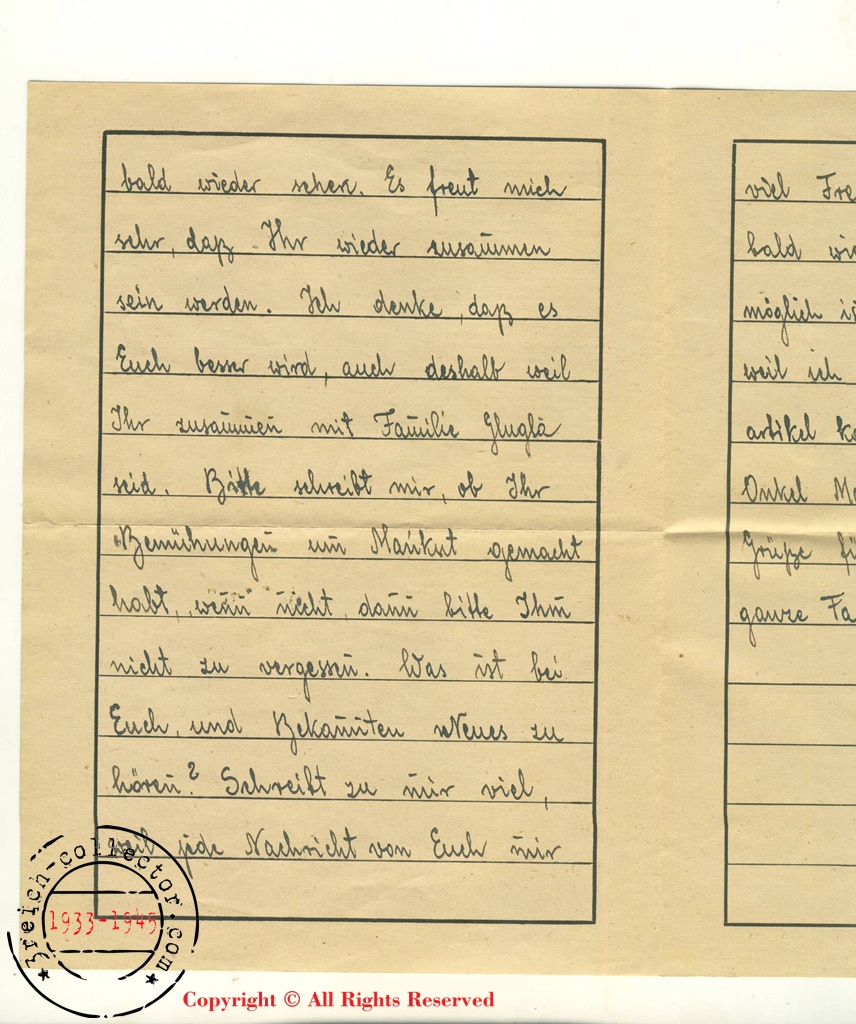 bald wieder sehen. Es freut mich
sehr, daß Ihr wieder zusammen
sein werden. Ich denke, daß es
Euch besser wird, auch deshalb weil
Ihr zusammen mit Familie Glugla
seid. Bitte schreibt mir, ob Ihr
Bemühungen um Mankut gemacht
habt, wenn nicht, dann bitte Ihm
nicht zu vergessen. Was ist bei
Euch, und Bekannten Neues zu
hören? Schreibt zu mir viel,
weil jede Nachricht von Euch mir
viel Fre
bald wie
möglich is
weil ich
artikel ko
Onkel Me
Grüße fü
ganze Fa
3reich-collector.com
1933-1945
Copyright © All Rights Reserved